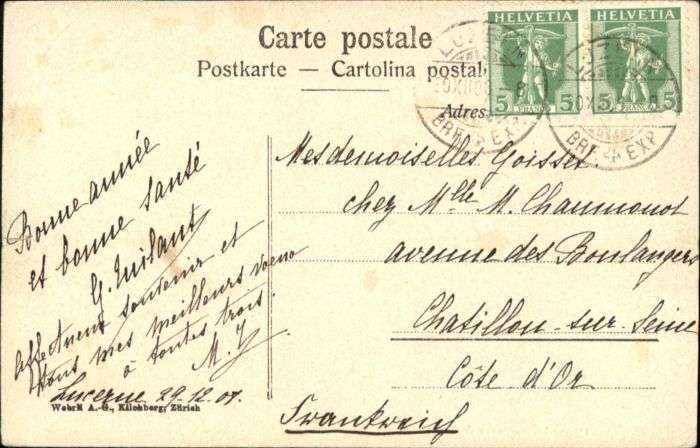 Carte postale
Postkarte — Cartolina postal
Adres
HELVETIA
5 FRANCO 5
HELVETIA
5 FRANCO 5
LUZERN
BRF. EXP.
LUZERN
BRF. EXP
Bonne année
et bonne santé
Affectueux souvenir et
tous mes meilleurs vœux
à toutes trois.
M. Y.
Lucerne 29.12.08.
Wehrli A.-G., Kilchberg, Zürich
Mesdemoiselles Goisset.
chez Mlle M. Chaumonot
avenue des Boulangers
Chatillon-sur-Seine
Côte d'Or
Frankreich